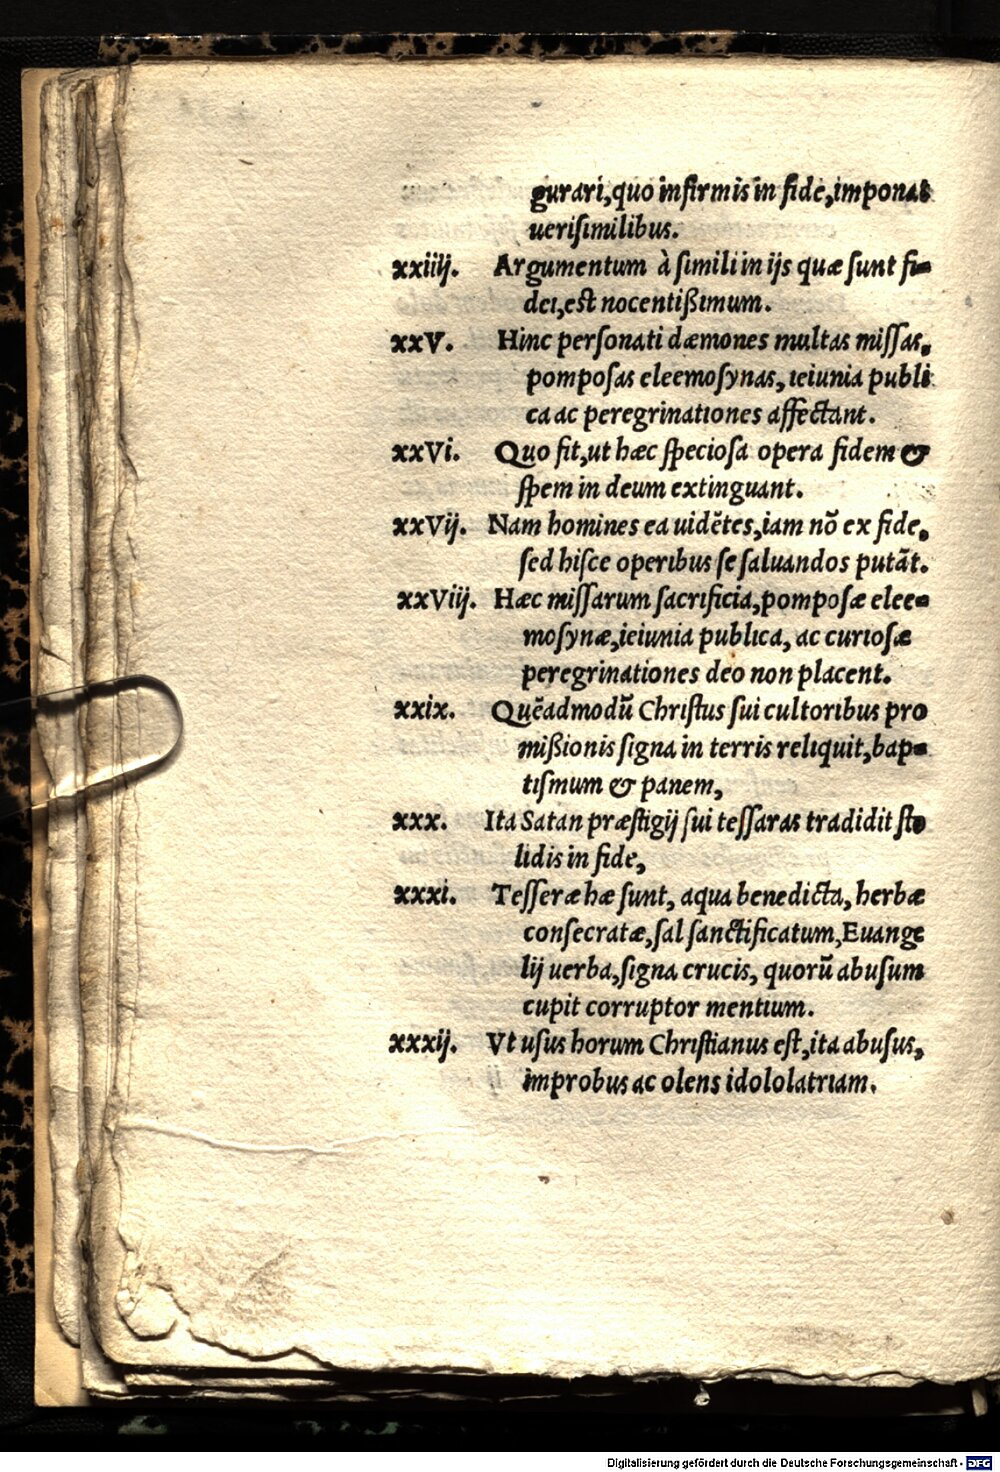 gurari,quo infirmis in fide,imponat
uerisimilibus.
xxiiij. Argumentum à simili in ijs quæ sunt fi=
dei,est nocentißimum.
xxV. Hinc personati dæmones multas missas,
pomposas eleemosynas, ieiunia publi
ca ac peregrinationes affectant.
xxVi. Quo fit,ut hæc speciosa opera fidem &
spem in deum extinguant.
xxVij. Nam homines ea uidētes,iam nō ex fide,
sed hisce operibus se saluandos putāt.
xxViij. Hæc missarum sacrificia,pomposæ elee=
mosynæ,ieiunia publica, ac curiosæ
peregrinationes deo non placent.
xxix. Quēadmodū Christus sui cultoribus pro
mißionis signa in terris reliquit,bap=
tismum & panem,
xxx. Ita Satan præstigij sui tessaras tradidit sto
lidis in fide,
xxxi. Tesseræ hæ sunt, aqua benedicta, herbæ
consecratæ,sal sanctificatum,Euange
lij uerba,signa crucis, quorū abusum
cupit corruptor mentium.
xxxij. Vt usus horum Christianus est,ita abusus,
improbus ac olens idololatriam.
Digitalisierung gefördert durch die Deutsche Forschungsgemeinschaft - DFG